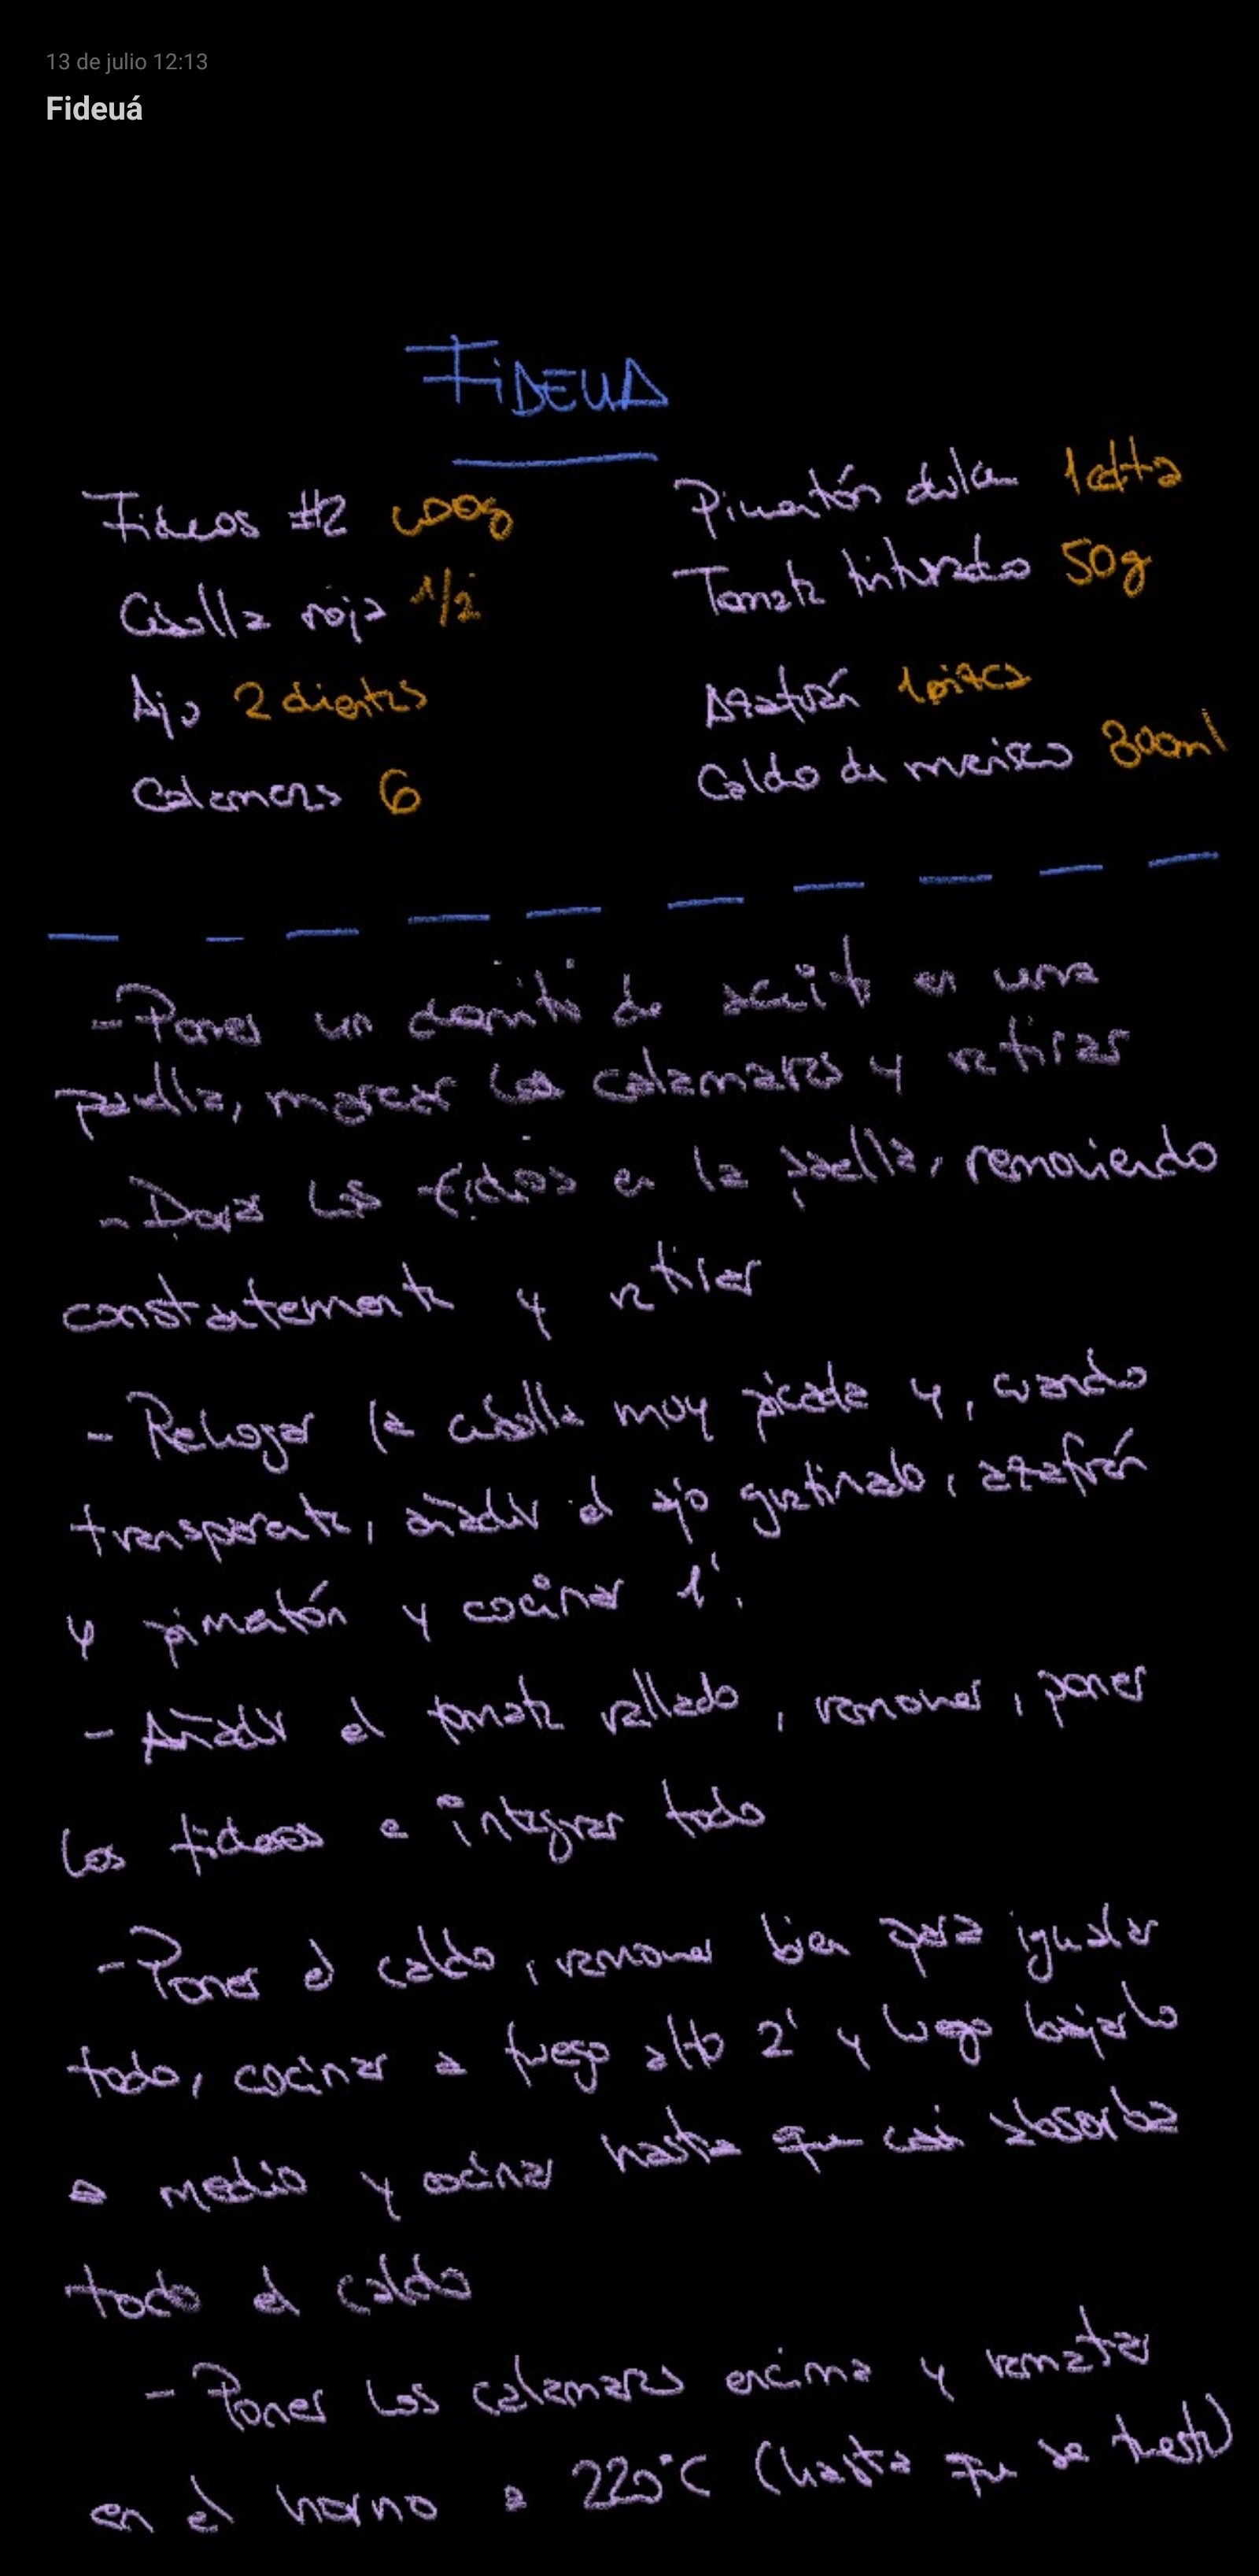 13 de julio 12:13
Fideuá
FIDEUÁ
Fideos #2
Cebolla roja 1/2
Ajo 2 dientes
Calamares 6
Pimentón dulce 1cdta
Tomate triturado 50g
Azafrán 1 pizca
Caldo de marisco 800ml
- Poner un chorrito de aceite en una
paella, marcar los calamares y retirar
- Dorar los fideos en la paella, removiendo
constantemente y retirar
- Rehogar la cebolla muy picada y, cuando
transparente, añadir el ajo gratinado, azafrán
y pimentón y cocinar 1'.
- Añadir el tomate rallado, remover, poner
los fideos e integrar todo
- Poner el caldo, remover bien para igualar
todo, cocinar a fuego alto 2' y luego bajarlo
a medio y cocinar hasta que casi absorba
todo el caldo
- Poner los calamares encima y rematar
en el horno a 220°C (hasta que se tueste)